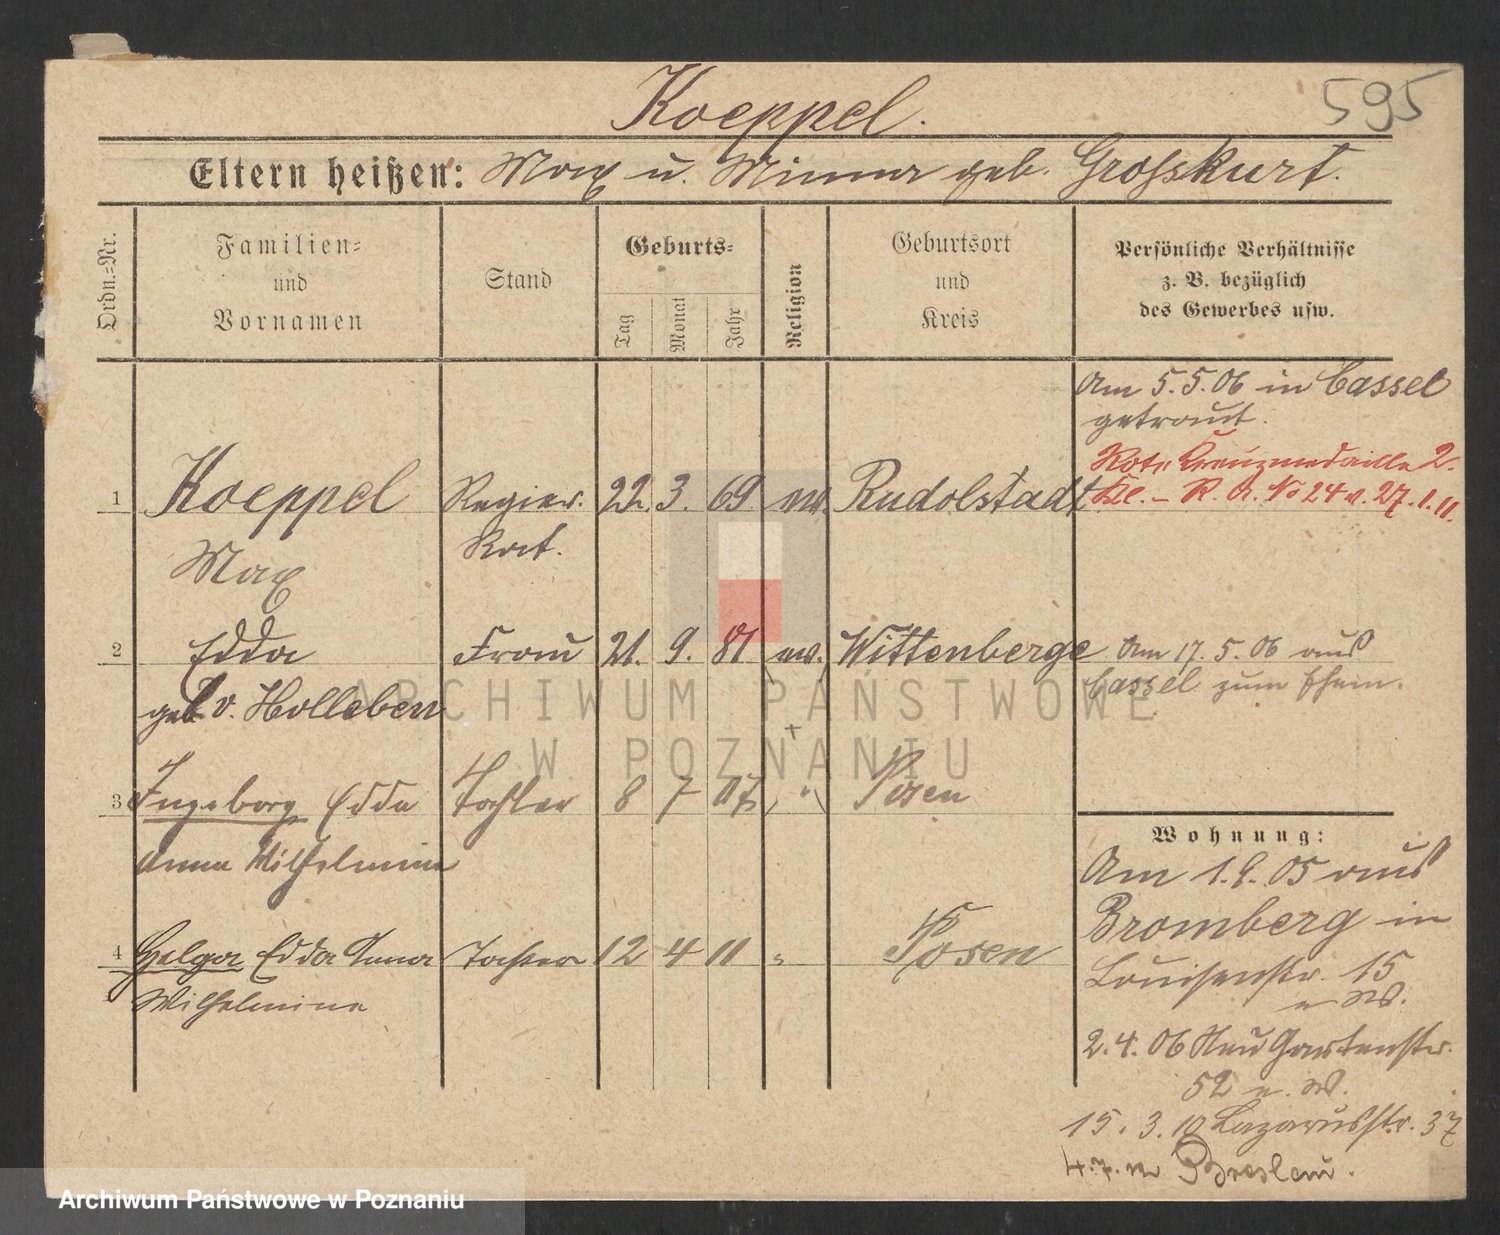 595
Koeppel.
Eltern heißen: Max u. Minna geb. Grosskurt.
Ordn.-Nr.
Familien- und Vornamen
Stand
Geburts-
Tag
Monat
Jahr
Religion
Geburtsort und Kreis
Persönliche Verhältnisse
z. B. bezüglich
des Gewerbes usw.
Am 5.5.06 in Cassel
getraut.
Rote Kreuzmedaille 2.
Kl. – R. A. No 24 v. 27.1.11.
1 Koeppel Regier. 22. 3. 69 ev. Rudolstadt
Max Rat.
2 Edda Frau 21. 9. 81 ev. Wittenberge Am 17.5.06 aus
geb. v. Holleben Cassel zum Ehem.
3 Ingeborg Edda Tochter 8 7 07 " Posen
Anna Wilhelmine
4 Helga Edda Anna Tochter 12 4 11 " Posen
Wilhelmine
Wohnung:
Am 1.9.05 aus
Bromberg in
Louisenstr. 15
e. W.
2.4.06 Neu Gartenstr.
52 e. W.
15.3.10 Lazarusstr. 37
4.7. Breslau.
ARCHIWUM PAŃSTWOWE
W POZNANIU
Archiwum Państwowe w Poznaniu